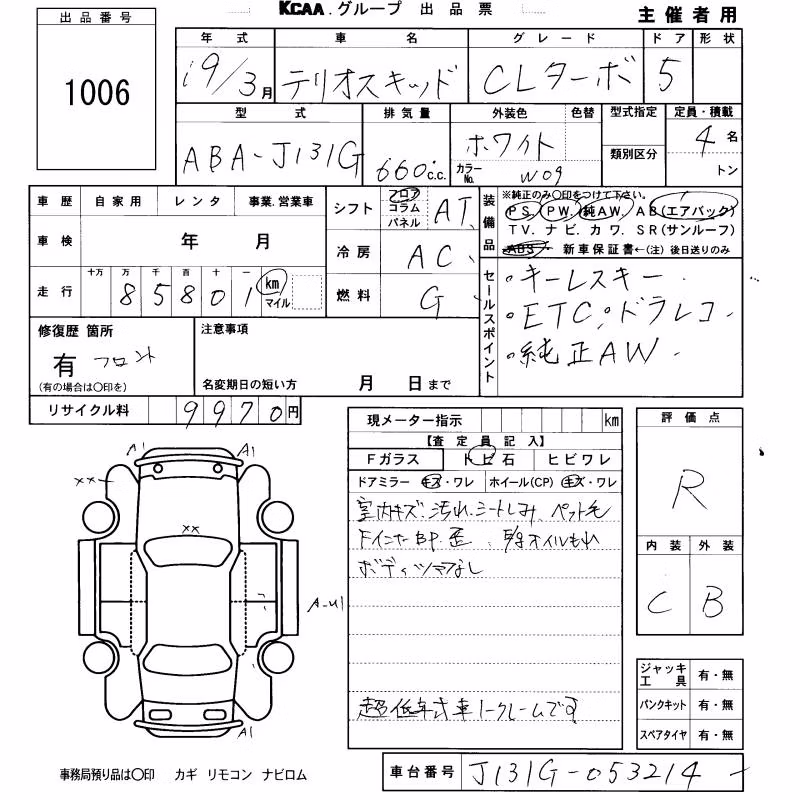 KCAA.グループ 出品票
主催者用
出品番号
1006
年式 車名 グレード ドア 形状
19/3月 テリオスキッド CLターボ 5
型式 排気量 外装色 色替 型式指定 定員・積載
ABA-J131G 660c.c. ホワイト 4名
カラーNo. W09 類別区分 トン
車歴 自家用 レンタ 事業.営業車
車検 年 月
走行 十万 万 千 百 十 一
85801 km マイル
シフト フロア コラム パネル AT
冷房 AC
燃料 G
装備品
※純正のみ○印をつけて下さい。
PS. PW. 純AW. AB(エアバック)
TV. ナビ. カワ. SR(サンルーフ)
ABS 新車保証書←(注) 後日送りのみ
セールスポイント
・キーレスキー
・ETC・ドラレコ
・純正AW
修復歴 箇所
有 フロント
(有の場合は○印を)
注意事項
名変期日の短い方 月 日まで
リサイクル料 9970円
現メーター指示 km
【査定員記入】
Fガラス トビ石 ヒビワレ
ドアミラー キズ・ワレ ホイール(CP) キズ・ワレ
室内キズ、汚れ、シートしみ、ペット毛
FインナーBP.歪、オイルもれ
ボディツヤなし
超低年式車ノークレームです
評価点
R
内装 外装
C B
A1 A1
××
××
A-U1
A1
ジャッキ工具 有・無
パンクキット 有・無
スペアタイヤ 有・無
事務局預り品は○印 カギ リモコン ナビロム
車台番号 J131G-053214